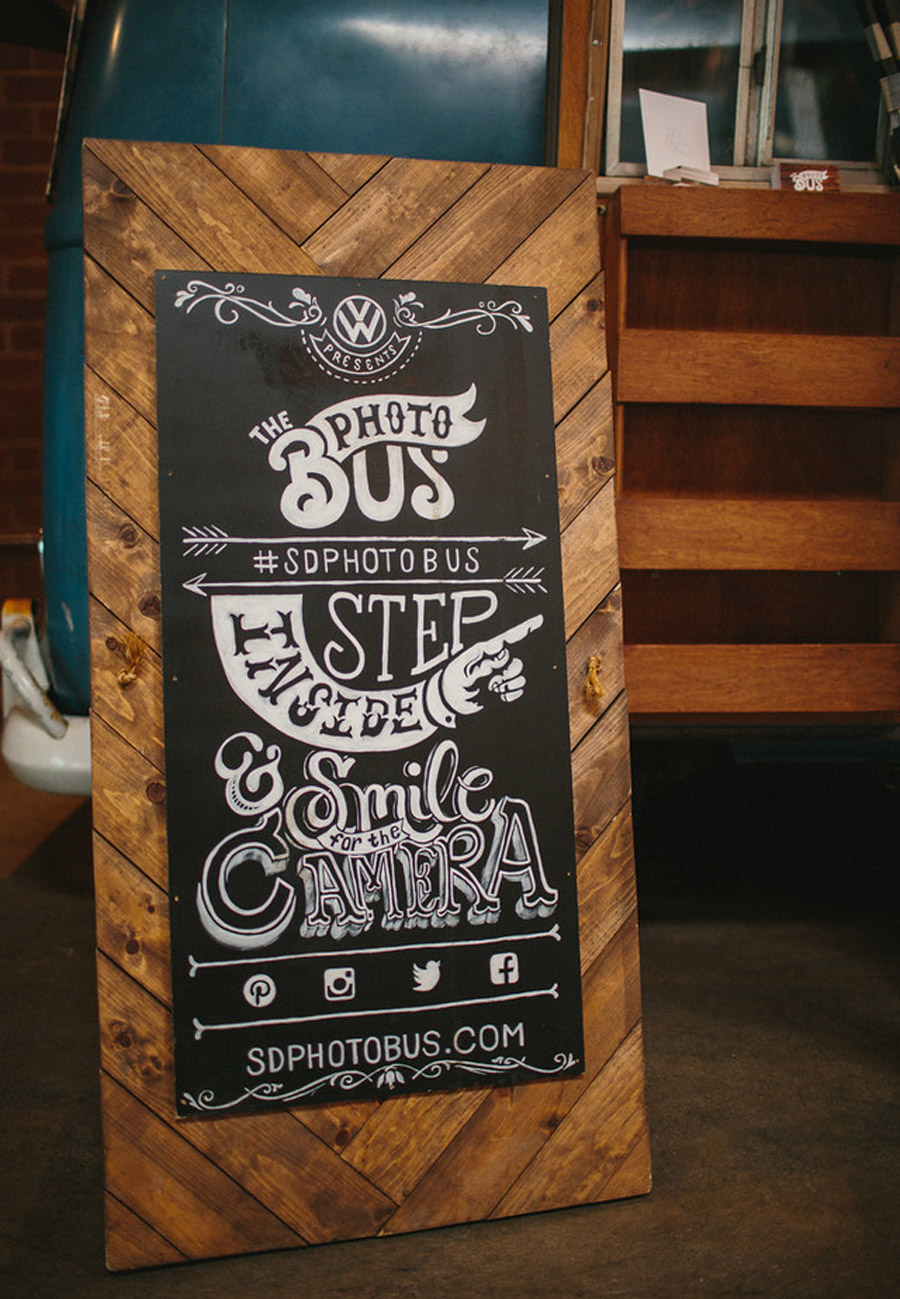 VW
PRESENTS
THE
PHOTO
BUS
#SDPHOTOBUS
STEP
INSIDE
& Smile
for the
CAMERA
SDPHOTOBUS.COM
BUS